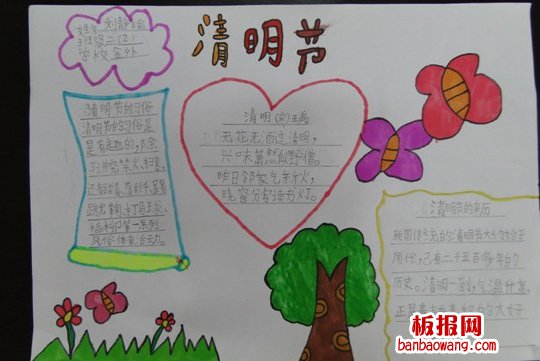 清明节
姓名 刘静
班级 二(2)
学校 金外
清明节的习俗
清明节的习俗是
是有趣的，除
了讲究禁火、扫墓，
还有踏青、荡秋千、蹴
踘、打马球、
插柳等一系列
风俗体育活动。
清明(宋)王禹
无花无酒过清明，
兴味萧然似野僧。
昨日邻家乞新火，
晓窗分与读书灯。
清明节的来历
我国传统的清明节大约始于
周代，已有二千五百多年的
历史。清明一到，气温升高，
正是春耕春种的大好
板报网
banbaowang.com